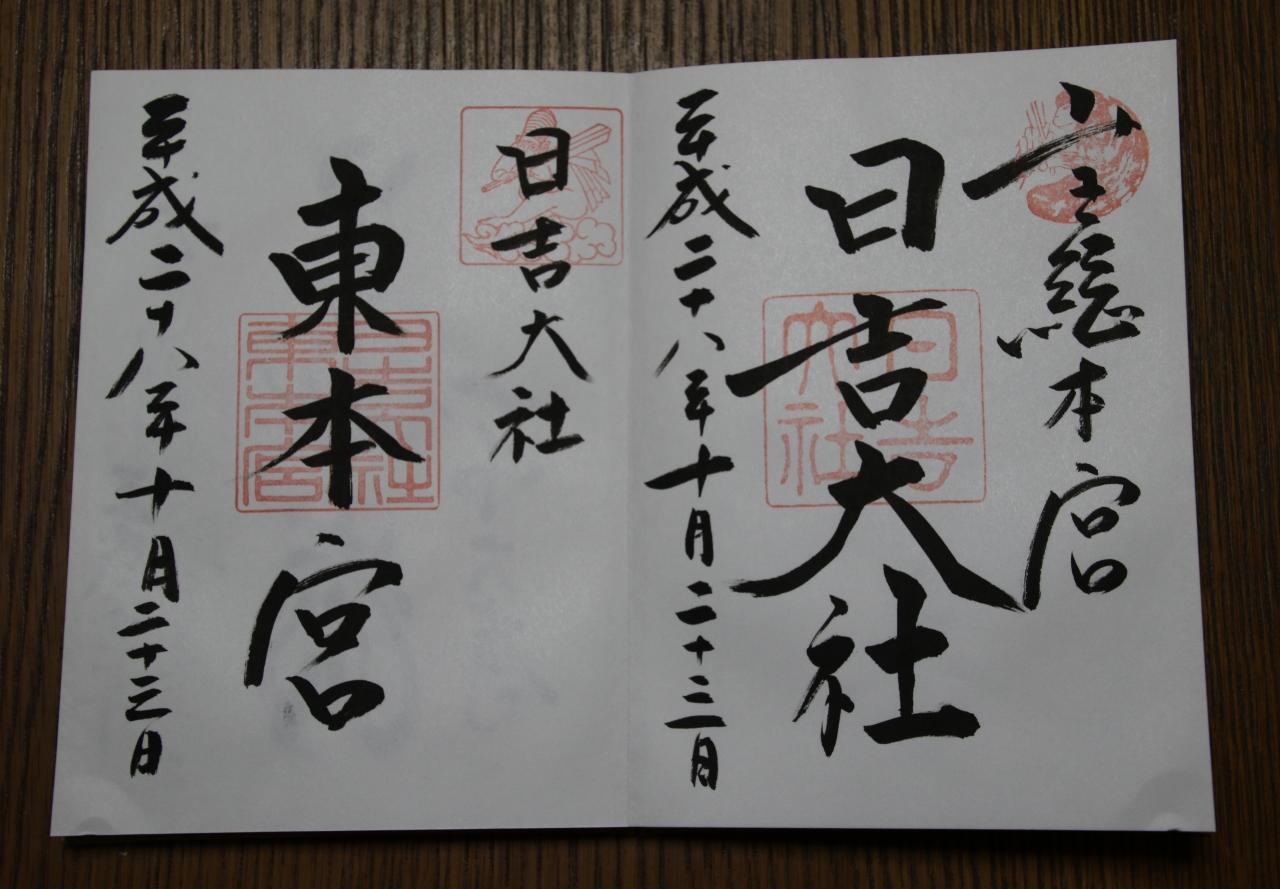 山王総本宮
日吉大社
日吉大社
平成二十八年十月二十三月
日吉大社
東本宮
日吉大社
東本宮
平成二十八年十月二十三日